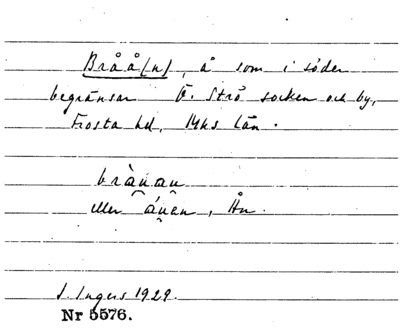 Bråå(n), å som i söder
begränsar Ö. Strö socken och by,
Frosta hd, Mhs län.
brȧ̀u̯an
eller áu̯en, Ån.
I. Ingers 1929.
Nr 5576.